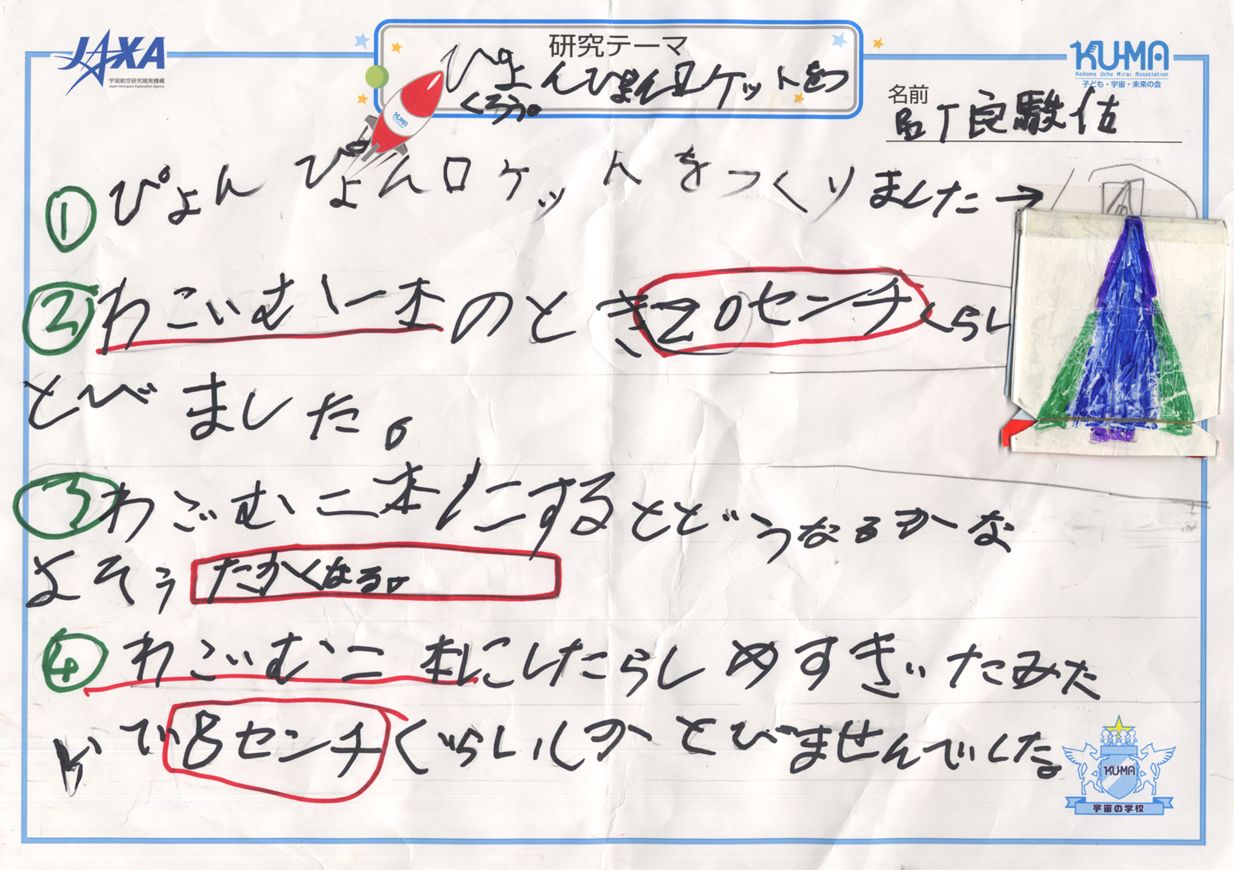 JAXA
宇宙航空研究開発機構
Japan Aerospace Exploration Agency
研究テーマ
ぴょんぴょんロケットをつ
くろう。
KUMA
KUMA
Kodomo Uchu Mirai Association
子ども・宇宙・未来の会
名前
良駿佑
① ぴょんぴょんロケットをつくりました→
② わごむ一本のとき20センチくらい
とびました。
③ わごむ二本にするとどうなるかな
よそう たかくなる。
④ わごむ二本にしたらしめすぎたみた
いで8センチぐらいしかとびませんでした。
KUMA
宇宙の学校